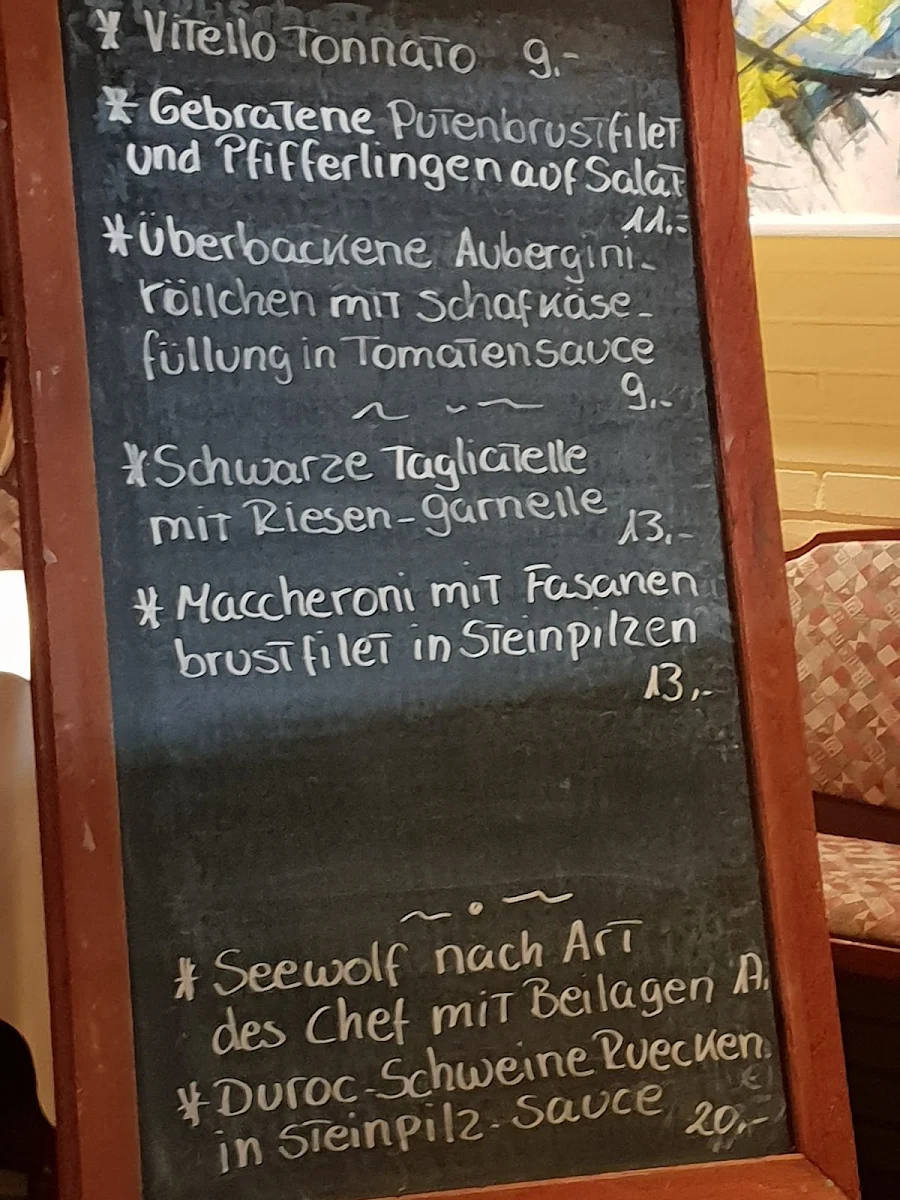 * Vitello Tonnato 9.-
* Gebratene Putenbrustfilet
und Pfifferlingen auf Salat
11.-
* Überbackene Aubergini-
röllchen mit Schafkäse-
füllung in Tomatensauce
9.-
* Schwarze Tagliatelle
mit Riesen-garnelle 13,-
* Maccheroni mit Fasanen
brustfilet in Steinpilzen
13,-
* Seewolf nach Art
des Chef mit Beilagen
* Duroc-Schweine Ruecken
in Steinpilz-Sauce 20,-